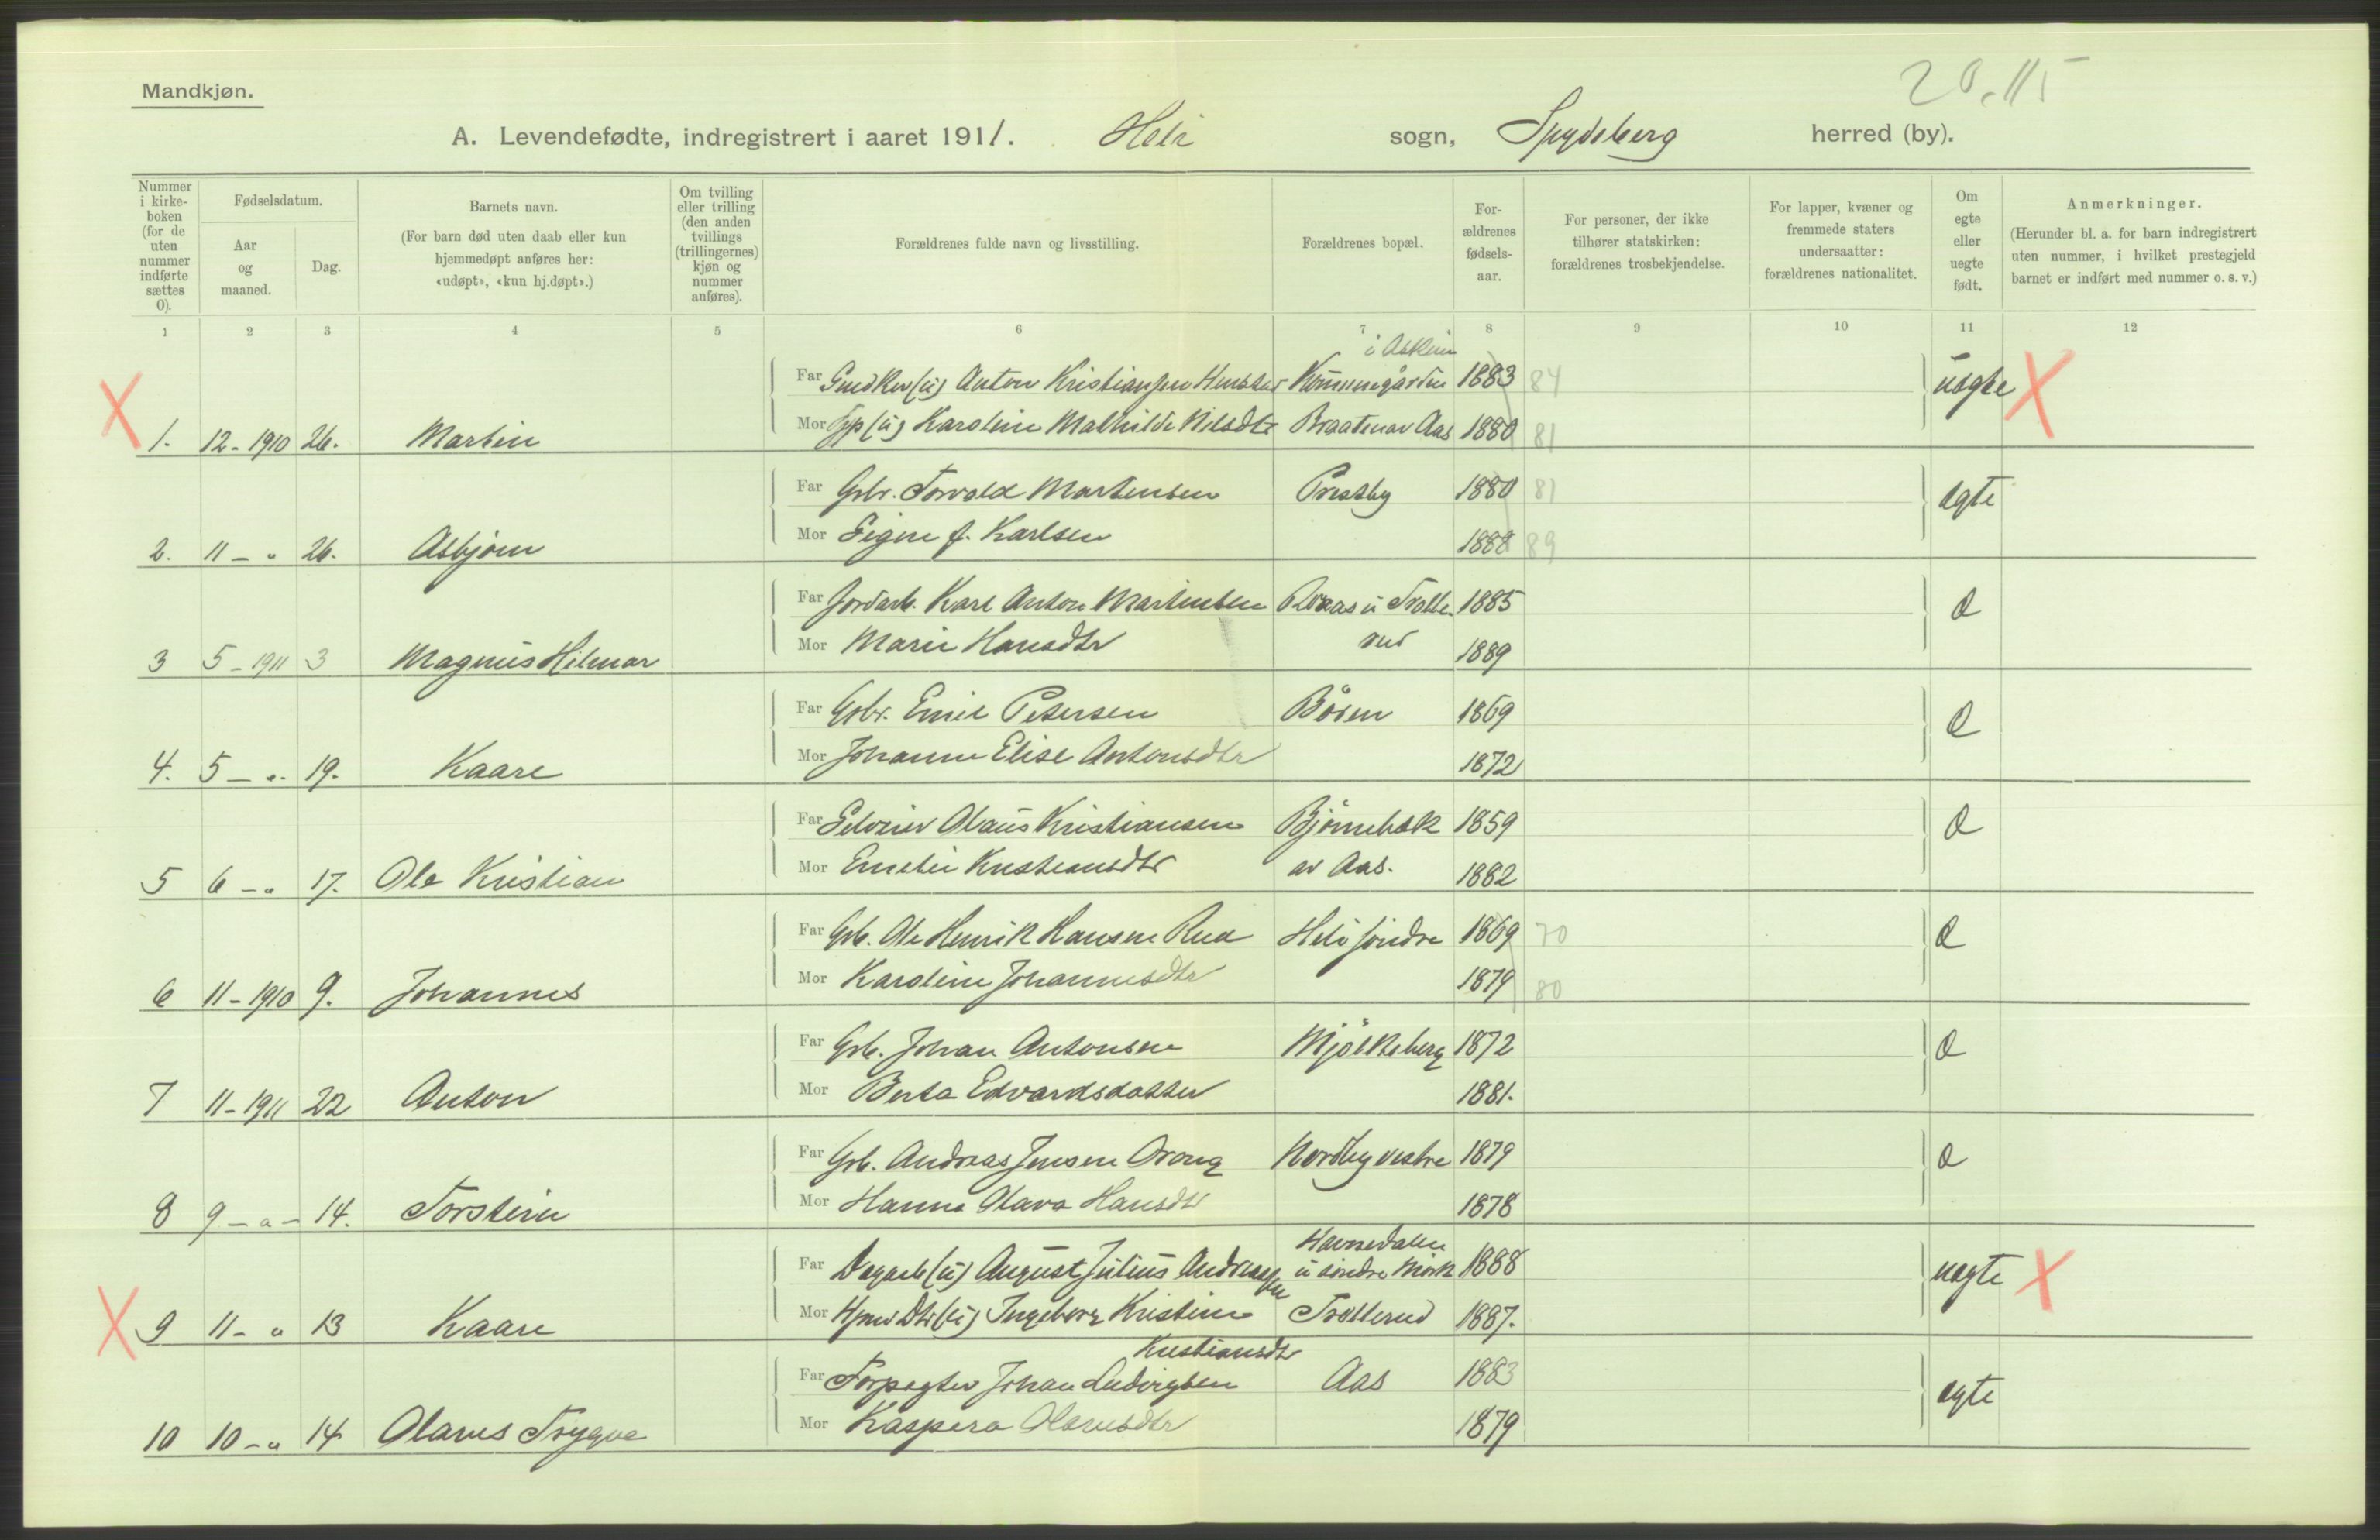 20.115
Mandkjøn.
A. Levendefødte, indregistrert i aaret 1911. Heli sogn, Spydeberg herred (by).
Nummer i kirke-boken (for de uten nummer indførte sættes 0).
Fødselsdatum.
Aar og maaned.
Dag.
Barnets navn.
(For barn død uten daab eller kun hjemmedøpt anføres her: «udøpt», «kun hj.døpt».)
Om tvilling eller trilling (den anden tvillings (trillingernes) kjøn og nummer anføres).
Forældrenes fulde navn og livsstilling.
Forældrenes bopæl.
For-ældrenes fødsels-aar.
For personer, der ikke tilhører statskirken: forældrenes trosbekjendelse.
For lapper, kvæner og fremmede staters undersaatter: forældrenes nationalitet.
Om egte eller uegte født.
Anmerkninger.
(Herunder bl. a. for barn indregistrert uten nummer, i hvilket prestegjeld barnet er indført med nummer o. s. v.)
1 2 3 4 5 6 7 8 9 10 11 12
i Askim
Far Anton Kristiansen 1883 84 uegte
Mor Karoline Mathilde Nilsdtr Braatenav Aas 1880 81
1. 12-1910 26. Martin
Far Gbr. Torvald Martensen Prestby 1880 81 egte
Mor Signe f. Karlsen 1888 89
2. 11 - " 26. Asbjørn
Far Jordarb. Karl Anton Martinsen 1885 d
Mor Marie Hansdtr rud 1889
3 5-1911 3 Magnus Hilmar
Far Gbr. Emil Petersen 1869 d
Mor Johanne Elise Antonsdtr 1872
4. 5 - " 19. Kaare
Far Selveier Olaus Kristiansen Bjørnebæk 1859 d
Mor Emelie Kristiansdtr av Aas. 1882
5 6 - " 17. Ole Kristian
Far Grb. Ole Henrik Hansen Rud Heli søndre 1869 70 d
Mor Karoline Johannesdtr 1879 80
6 11-1910 9. Johannes
Far Grb. Johan Antonsen Mjølkeberg 1872 d
Mor Berta Edvardsdatter 1881.
7 11-1911 22 Anton
Far Grb. Andreas Jensen Nordby vestre 1879 d
Mor Hanna Olava Hansdtr 1878
8 9 - " - 14. Torstein
Far Dagarb (u) August Julius Andreassen u søndre Mørk 1888 uegte
Mor Hjmv Dtr (u) Ingeborg Kristine Trollerud 1887.
9 11 - " 13 Kaare
Kristiansdtr
Far Forpagter Johan Ludvigsen Aas 1883 egte
Mor Kaspera Olavesdtr 1879
10 10 - " 14 Olavus Trygve